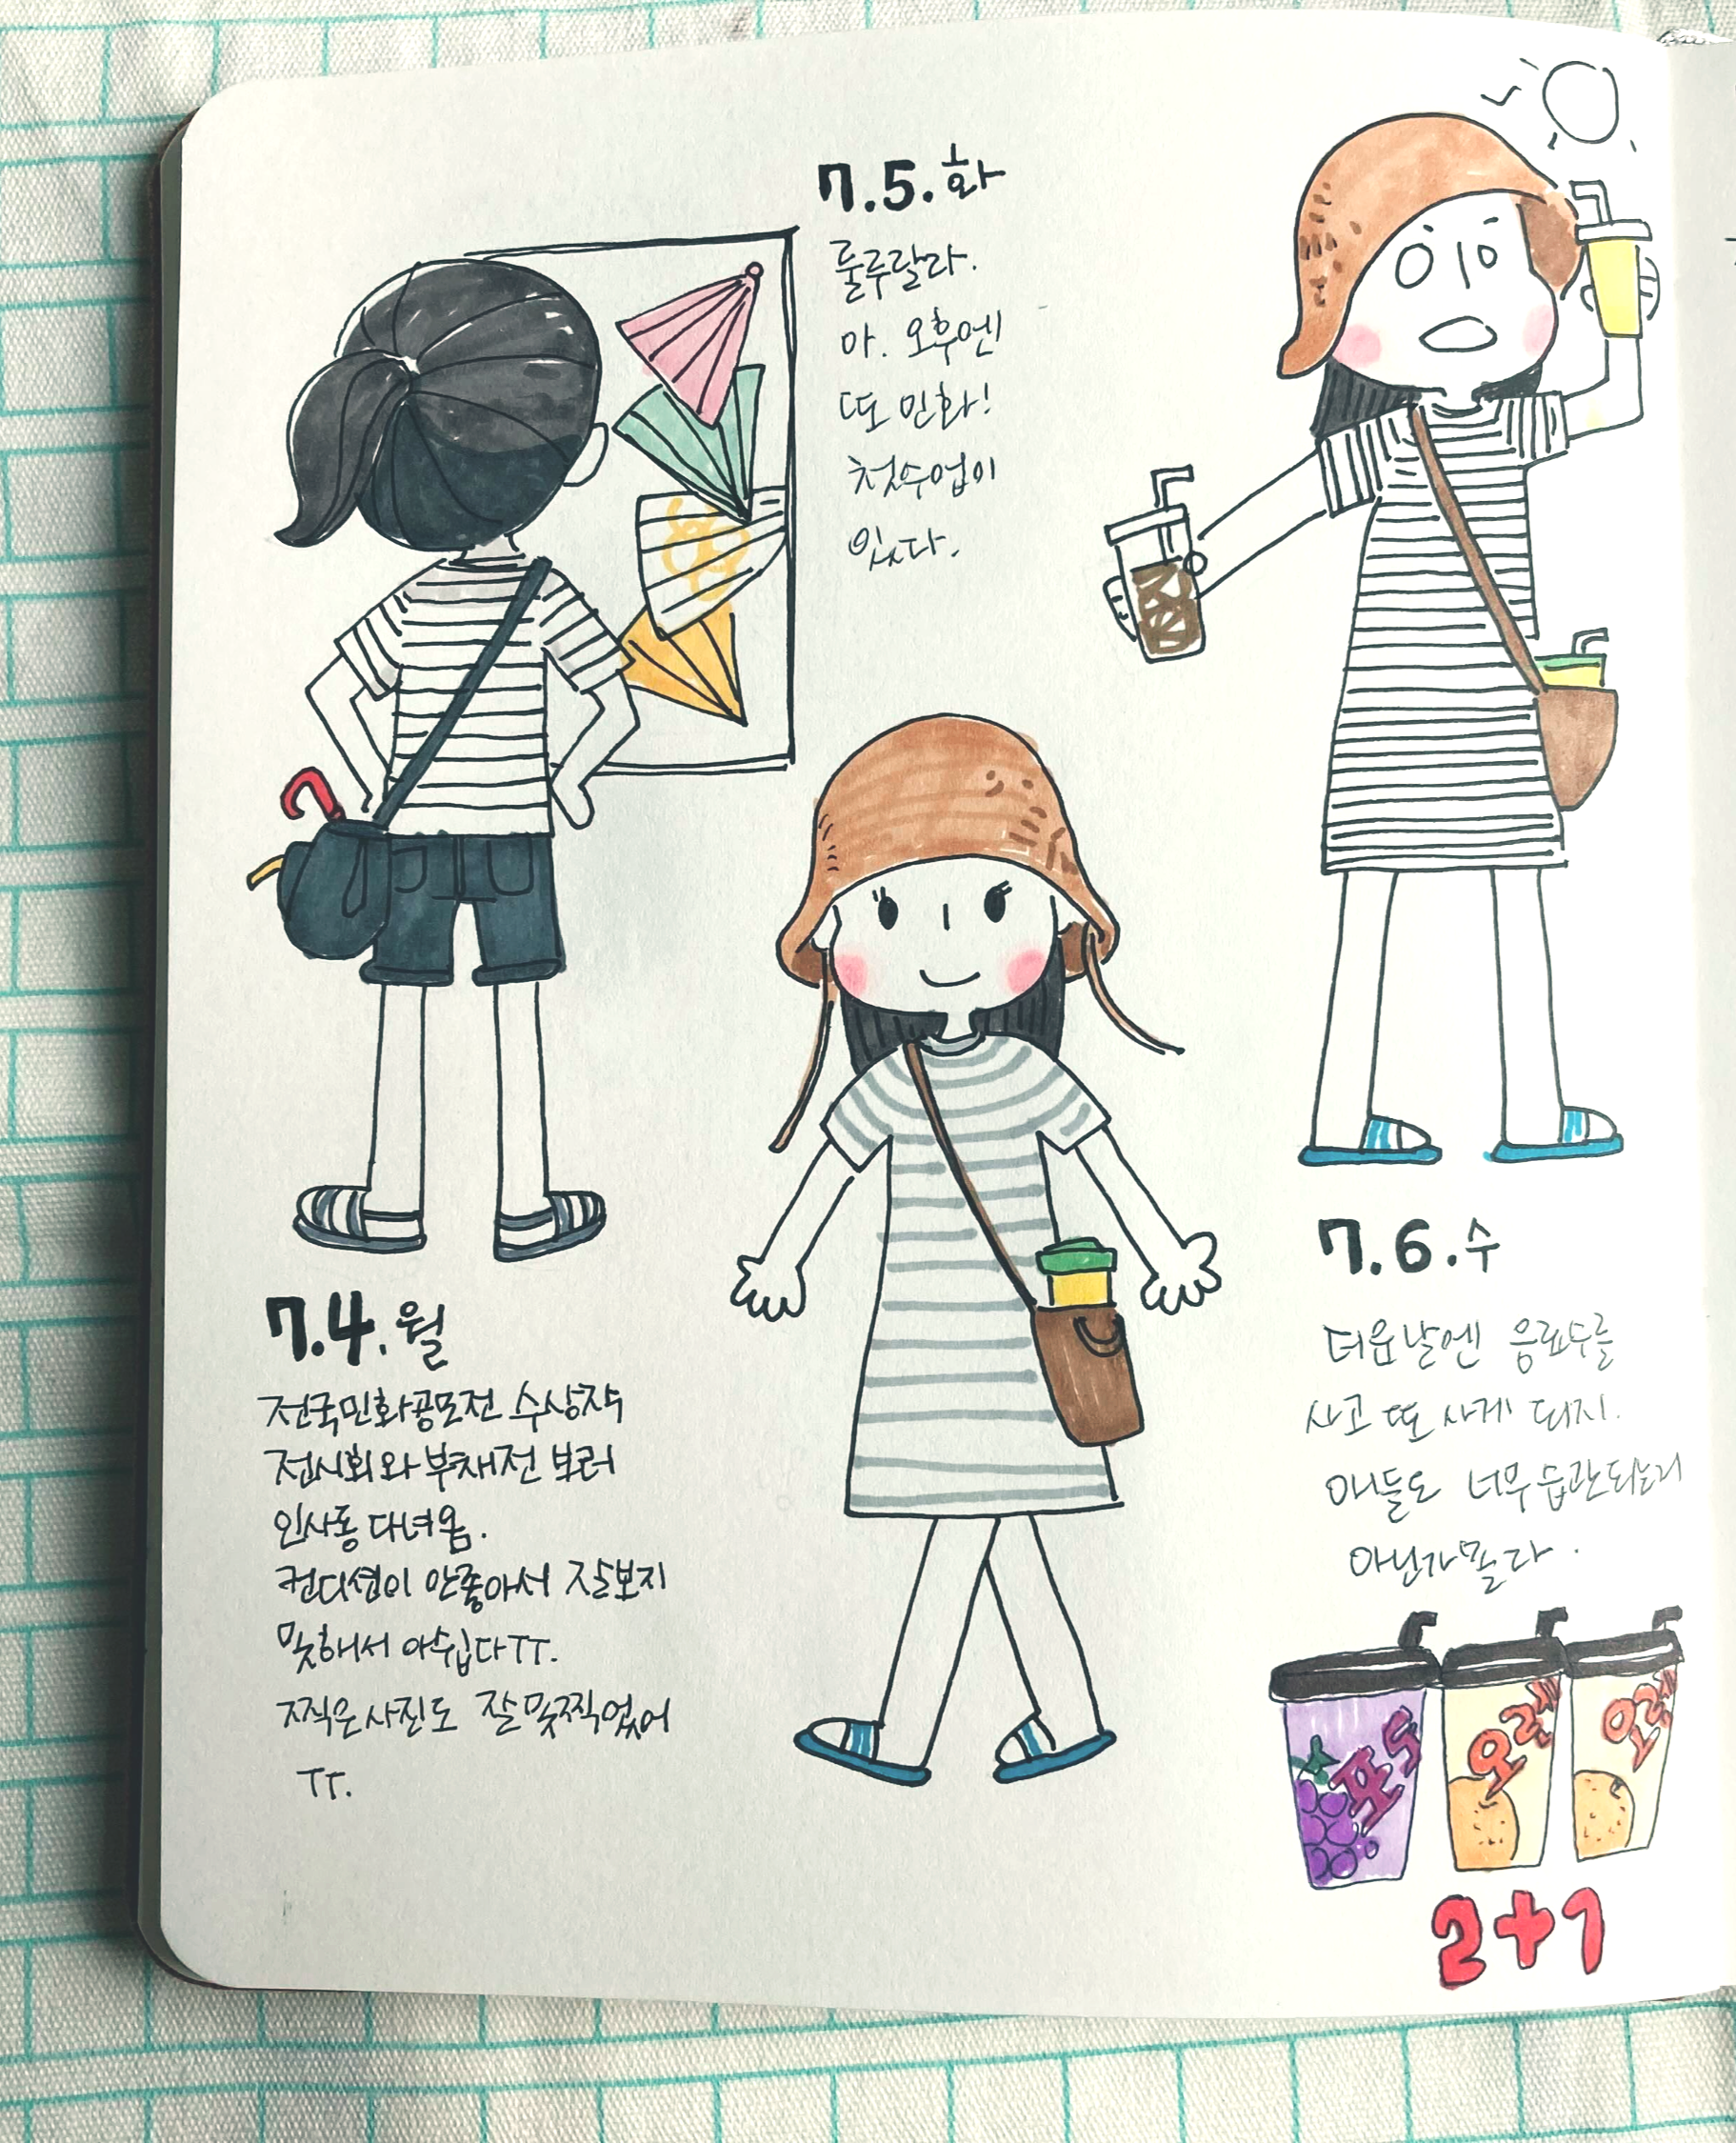 7.4.월
전국민화공모전 수상작
전시회와 부채전 보러
인사동 다녀옴.
컨디션이 안좋아서 잘보지
못해서 아쉽다 TT.
찍은사진도 잘못찍었어
TT.
7.5.화
룰루랄라.
아. 오후엔
또 민화!
첫수업이
있다.
7.6.수
더운날엔 음료수를
사고 또 사게 되지.
얘들도 너무 습관되는거
아닌가몰라.
포도
오렌지
오렌지
2+1